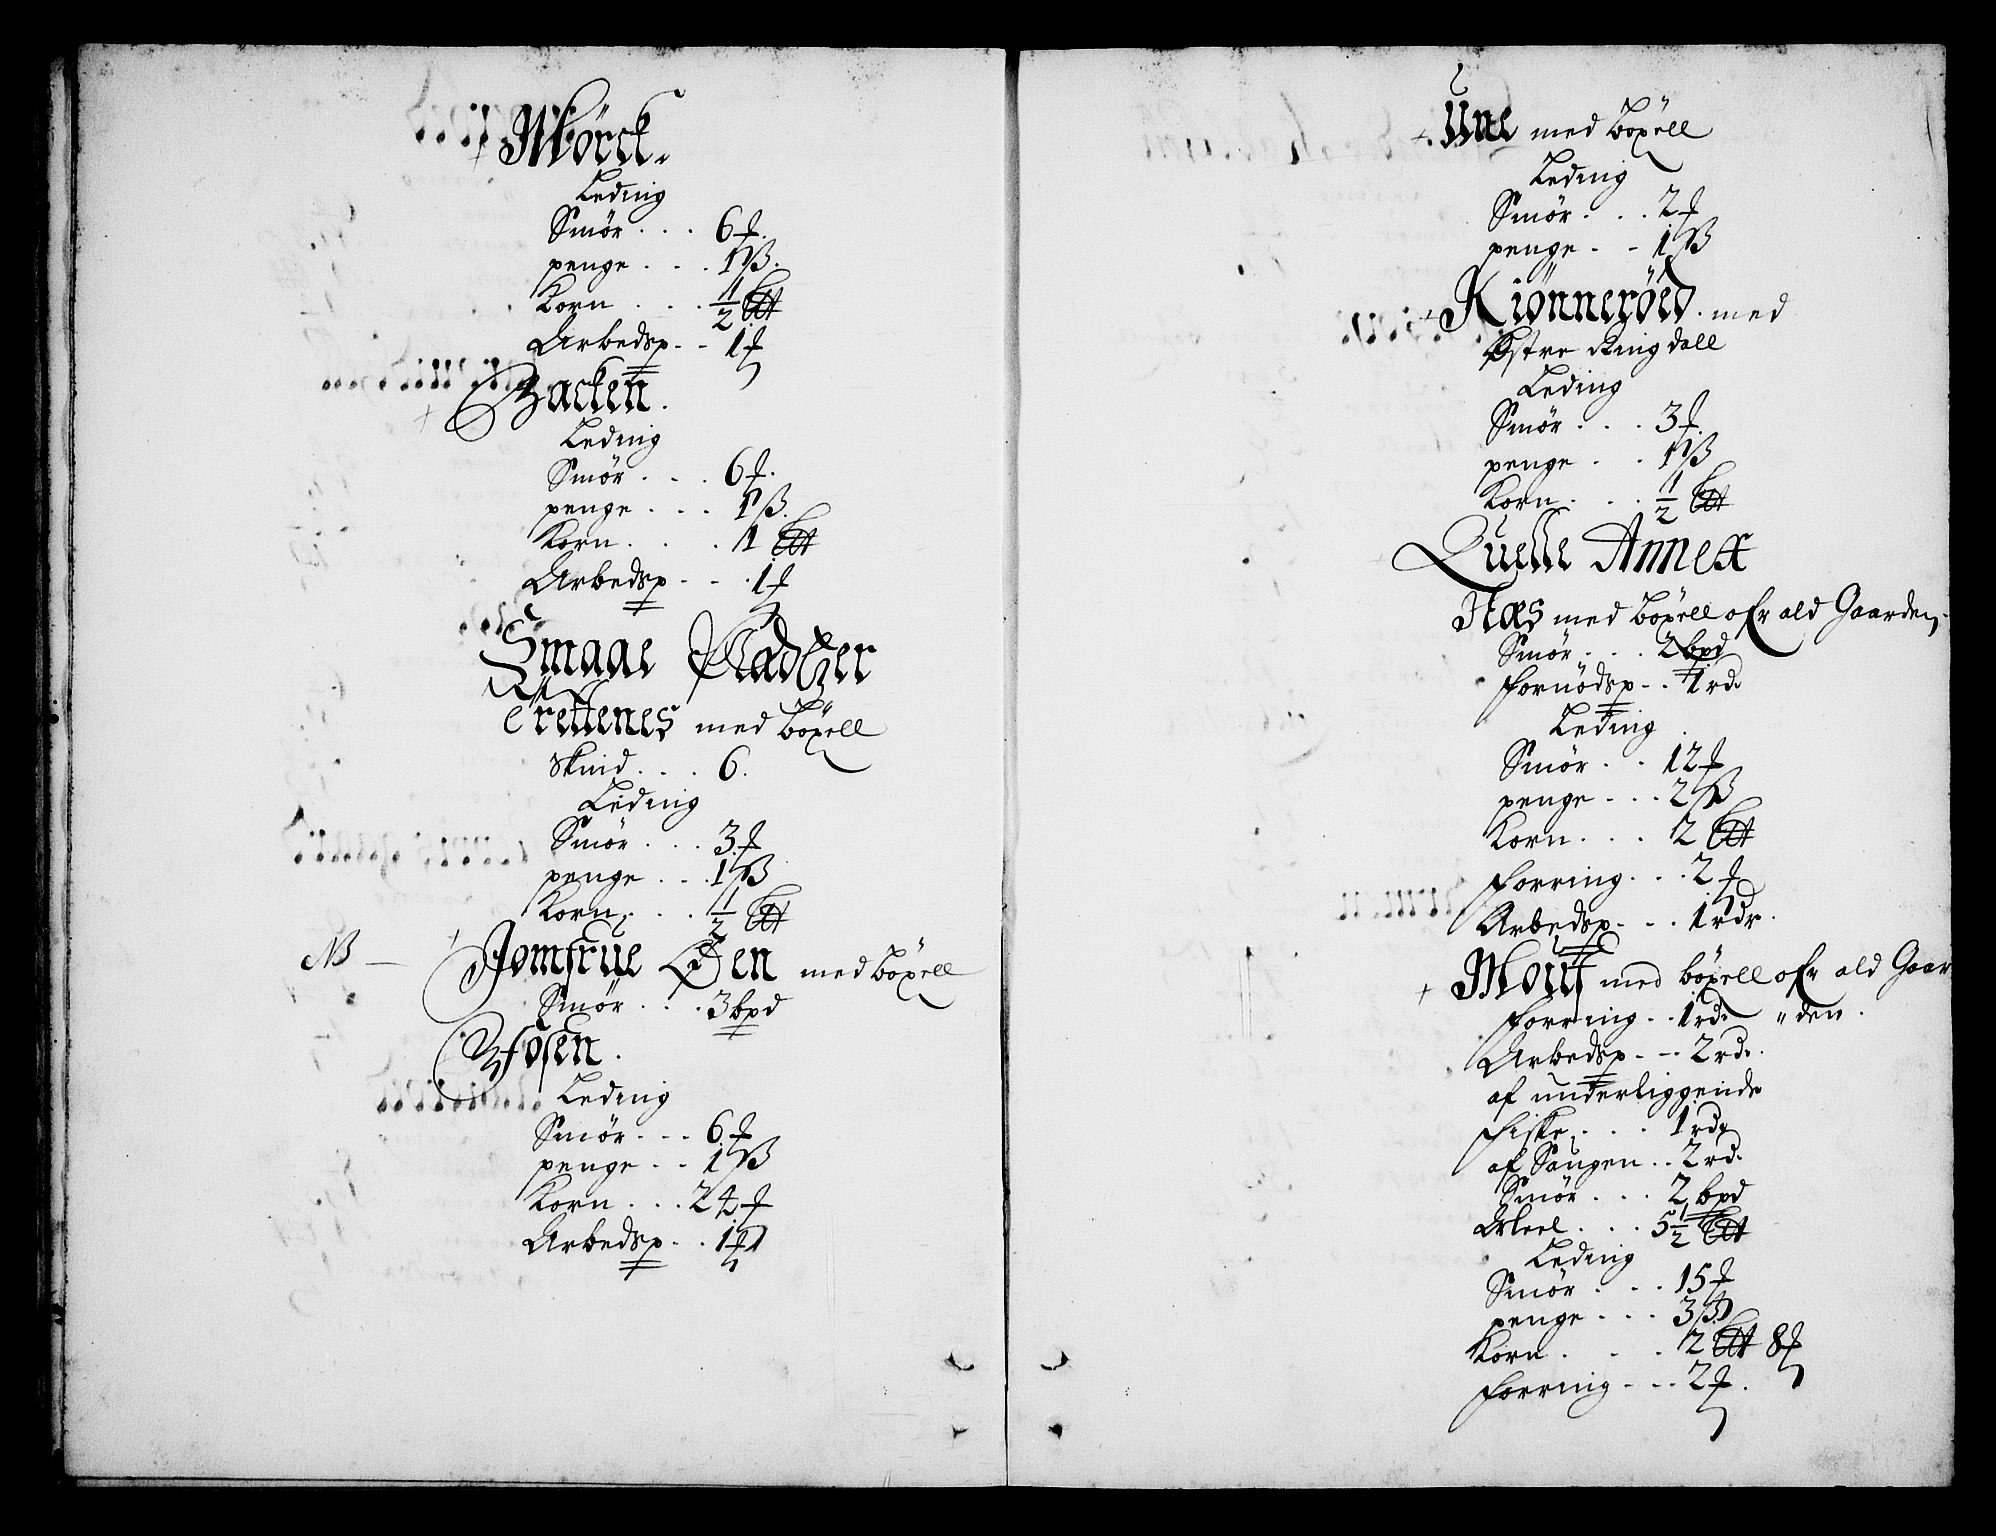 Mørck.
Leding
Smør . . . 6 ℔.
penge . . . 1 ß.
Korn . . . ½ Sett
Arbedsp. - - 1 ℔
Backen.
Leding
Smør . . . 6 ℔.
penge . . . 1 ß.
Korn . . . 1 Sett
Arbedsp - - . 1 ℔
Smaae Pladtzer
Trettenes med Böxell
Skind . . . 6.
Leding
Smör . . . 3 ℔
penge . . . 1 ß
Korn . . . ½ Sett
NB — Jomfrue Øen med böxell
Smör . . . 3 bpd
Fosen.
Leding
Smör . . . 6 ℔
penge . . 1 ß
Korn . . . 24 ℔
Arbedsp. . . 1 ℔
Une med Böxell
Leding
Smør . . . 2 ℔
penge . - 1 ß
Kiönneröed. med
østre Ringdall
Leding
Smør . . . 3 ℔.
penge . . 1 ß
Korn . . . ½ Sett
Quelle Annex
Næs med Böxell ofr ald Gaarden.
Smör . . . 2 bpd
fornödsp - . 1 rd.
Leding
Smör . . 12 ℔
penge . . . 2 ß
Korn . . . 2 Sett
forring . . . 2 ℔
Arbedsp. - . 1 rdr.
Mout med böxell ofr ald Gaar
forring . . 1 rd. "den.
Arbedsp. - - 2 rd.
af underliggende
fiske . . . 1 rd
af Saugen . . 2 rd.
Smör . . . 2 bpd
. . . 5½ Sett
Leding
Smör . . . 15 ℔
penge . . . 3 ß
Korn . . . 2 Sett 8 ℔
forring - - - 2 ℔.